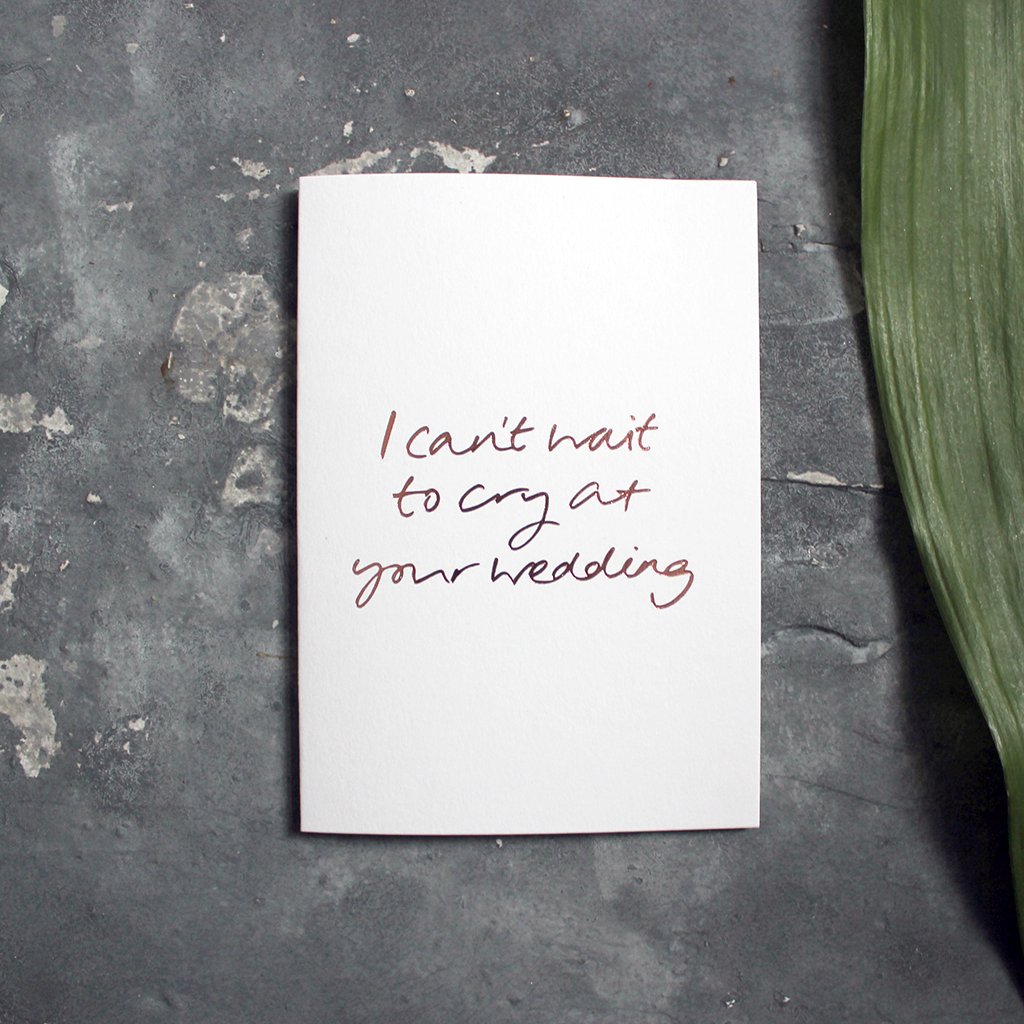 I can't wait
to cry at
your wedding